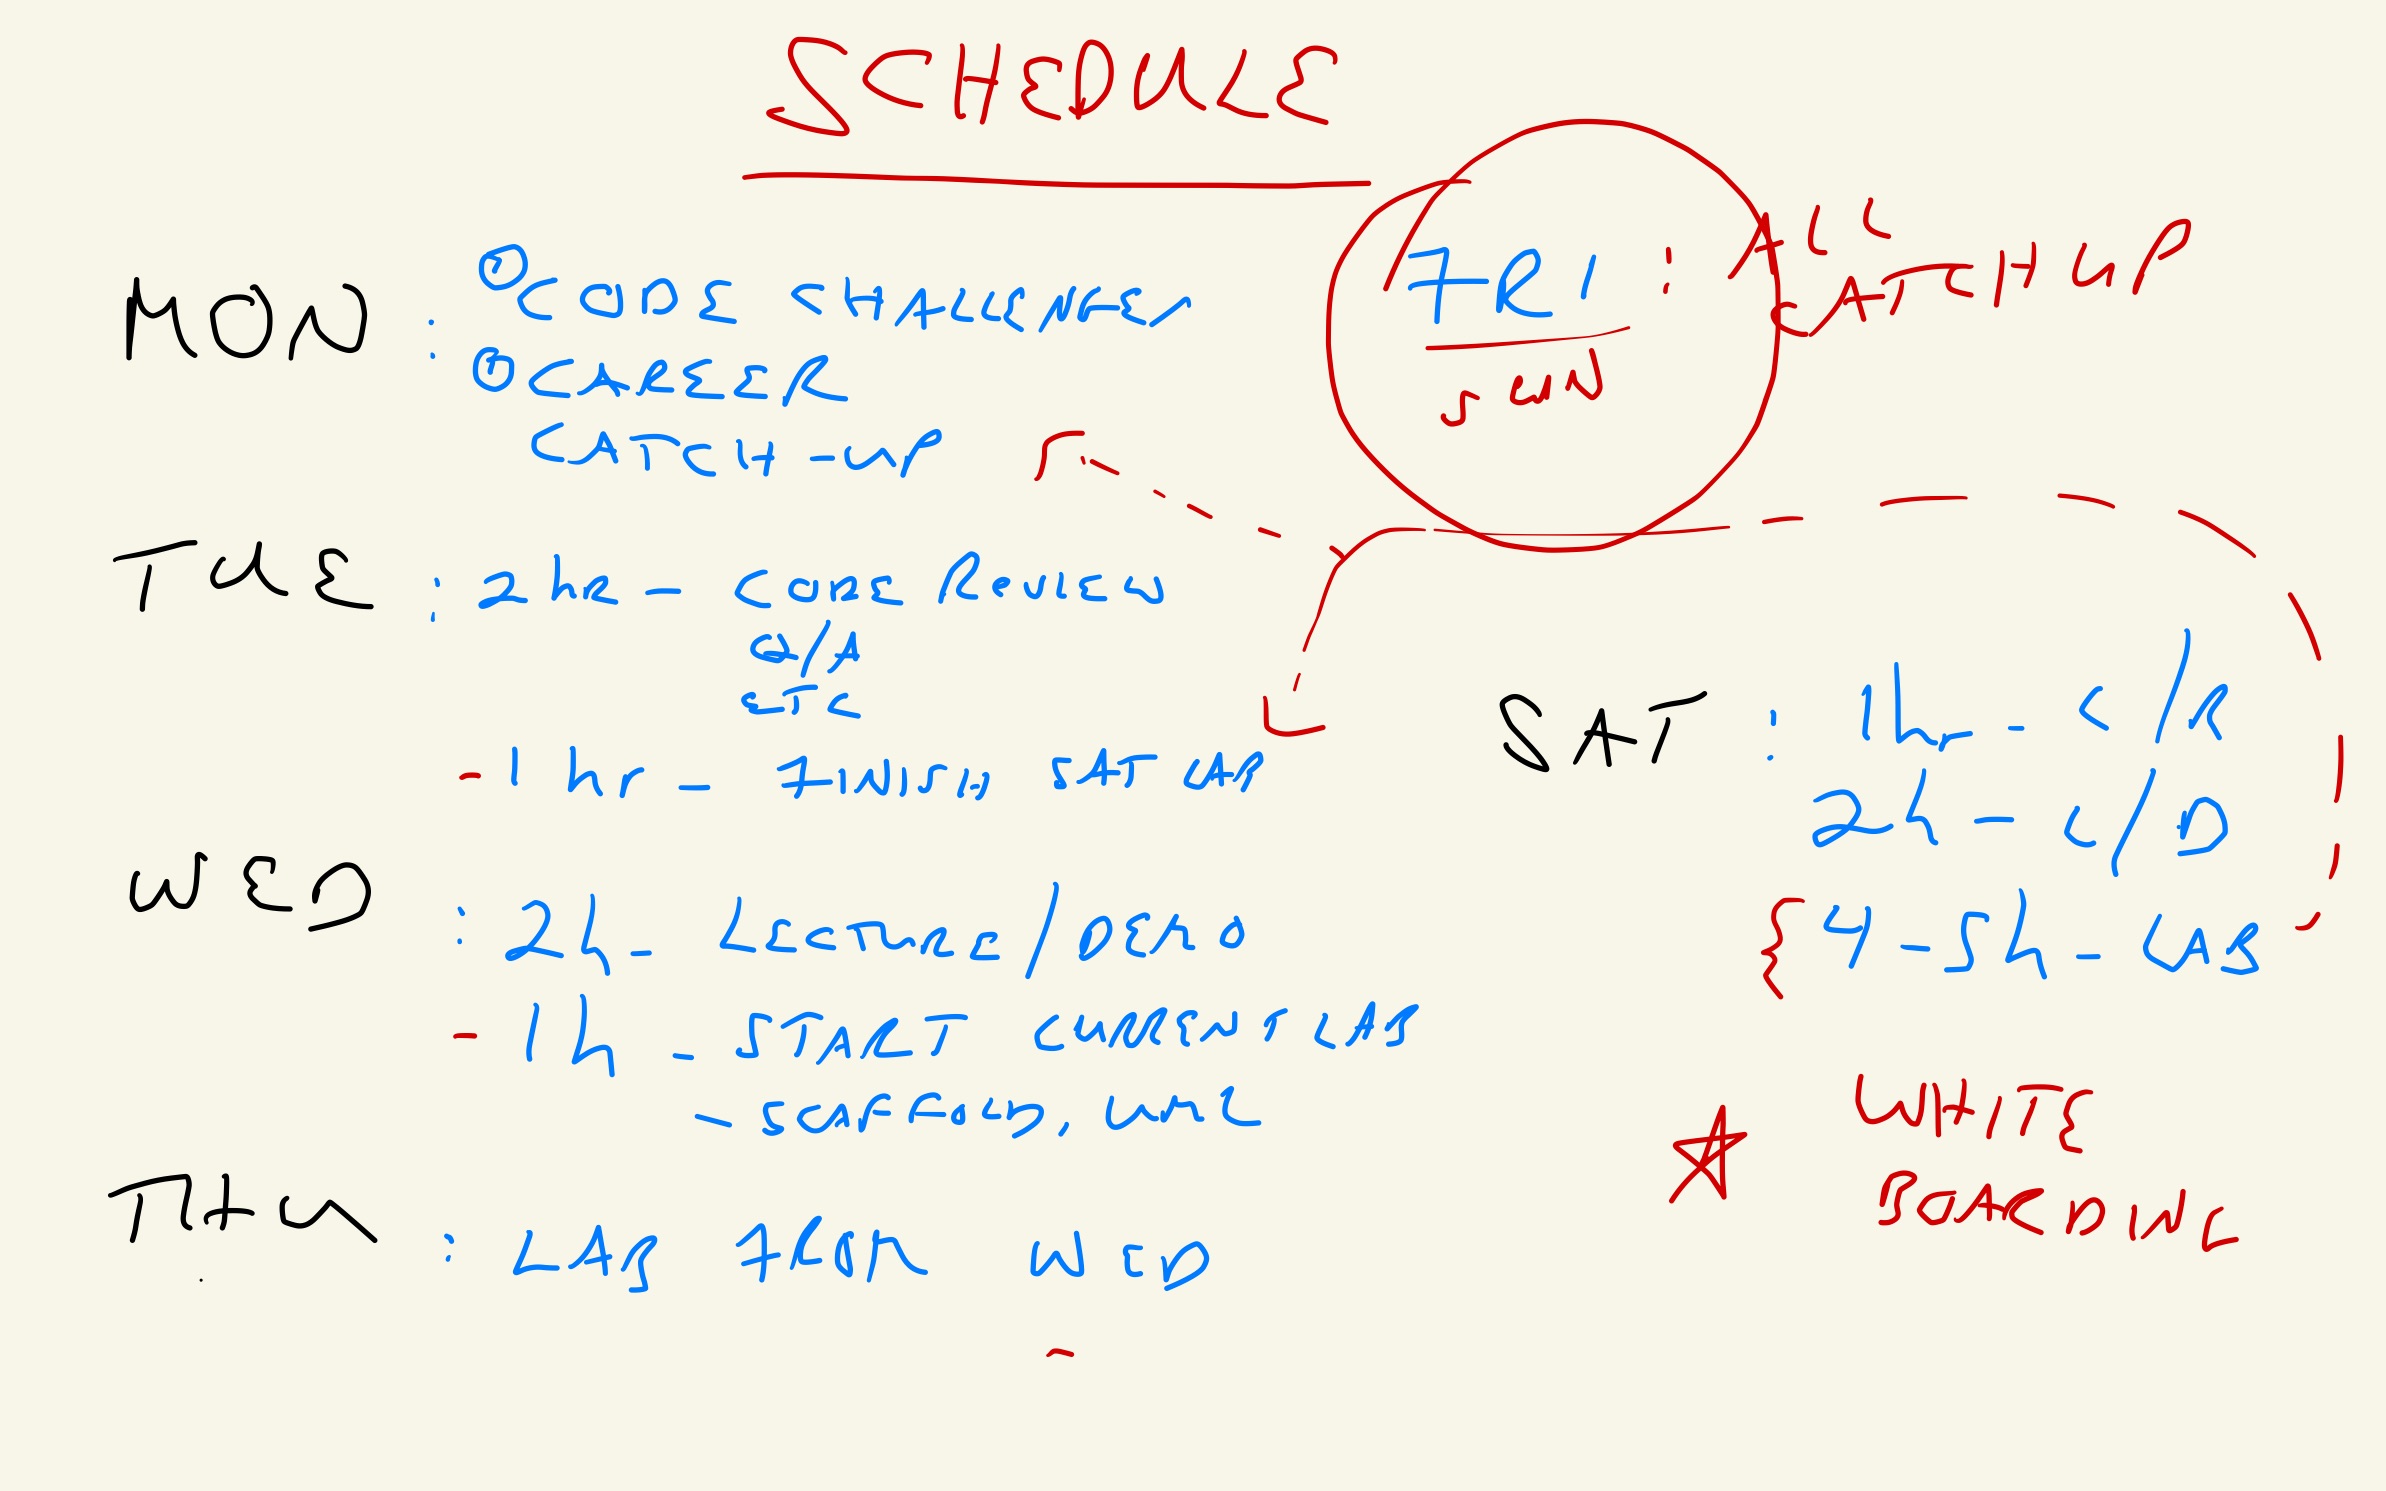 SCHEDULE
MON : ① CODE CHALLENGES
① CAREER
CATCH-UP
TUE : 2hr - CODE REVIEW
Q/A
ETC
- 1 hr - FINISH SAT LAB
WED : 2h - LECTURE/DEMO
- 1h - START CURRENT LAB
- SCAFFOLD, UML
THU : LAB FROM WED
FRI : ALL
CATCHUP
SUN
SAT : 1h - C/R
2h - C/D
{ 4-5h - LAB
WHITE
BOARDING